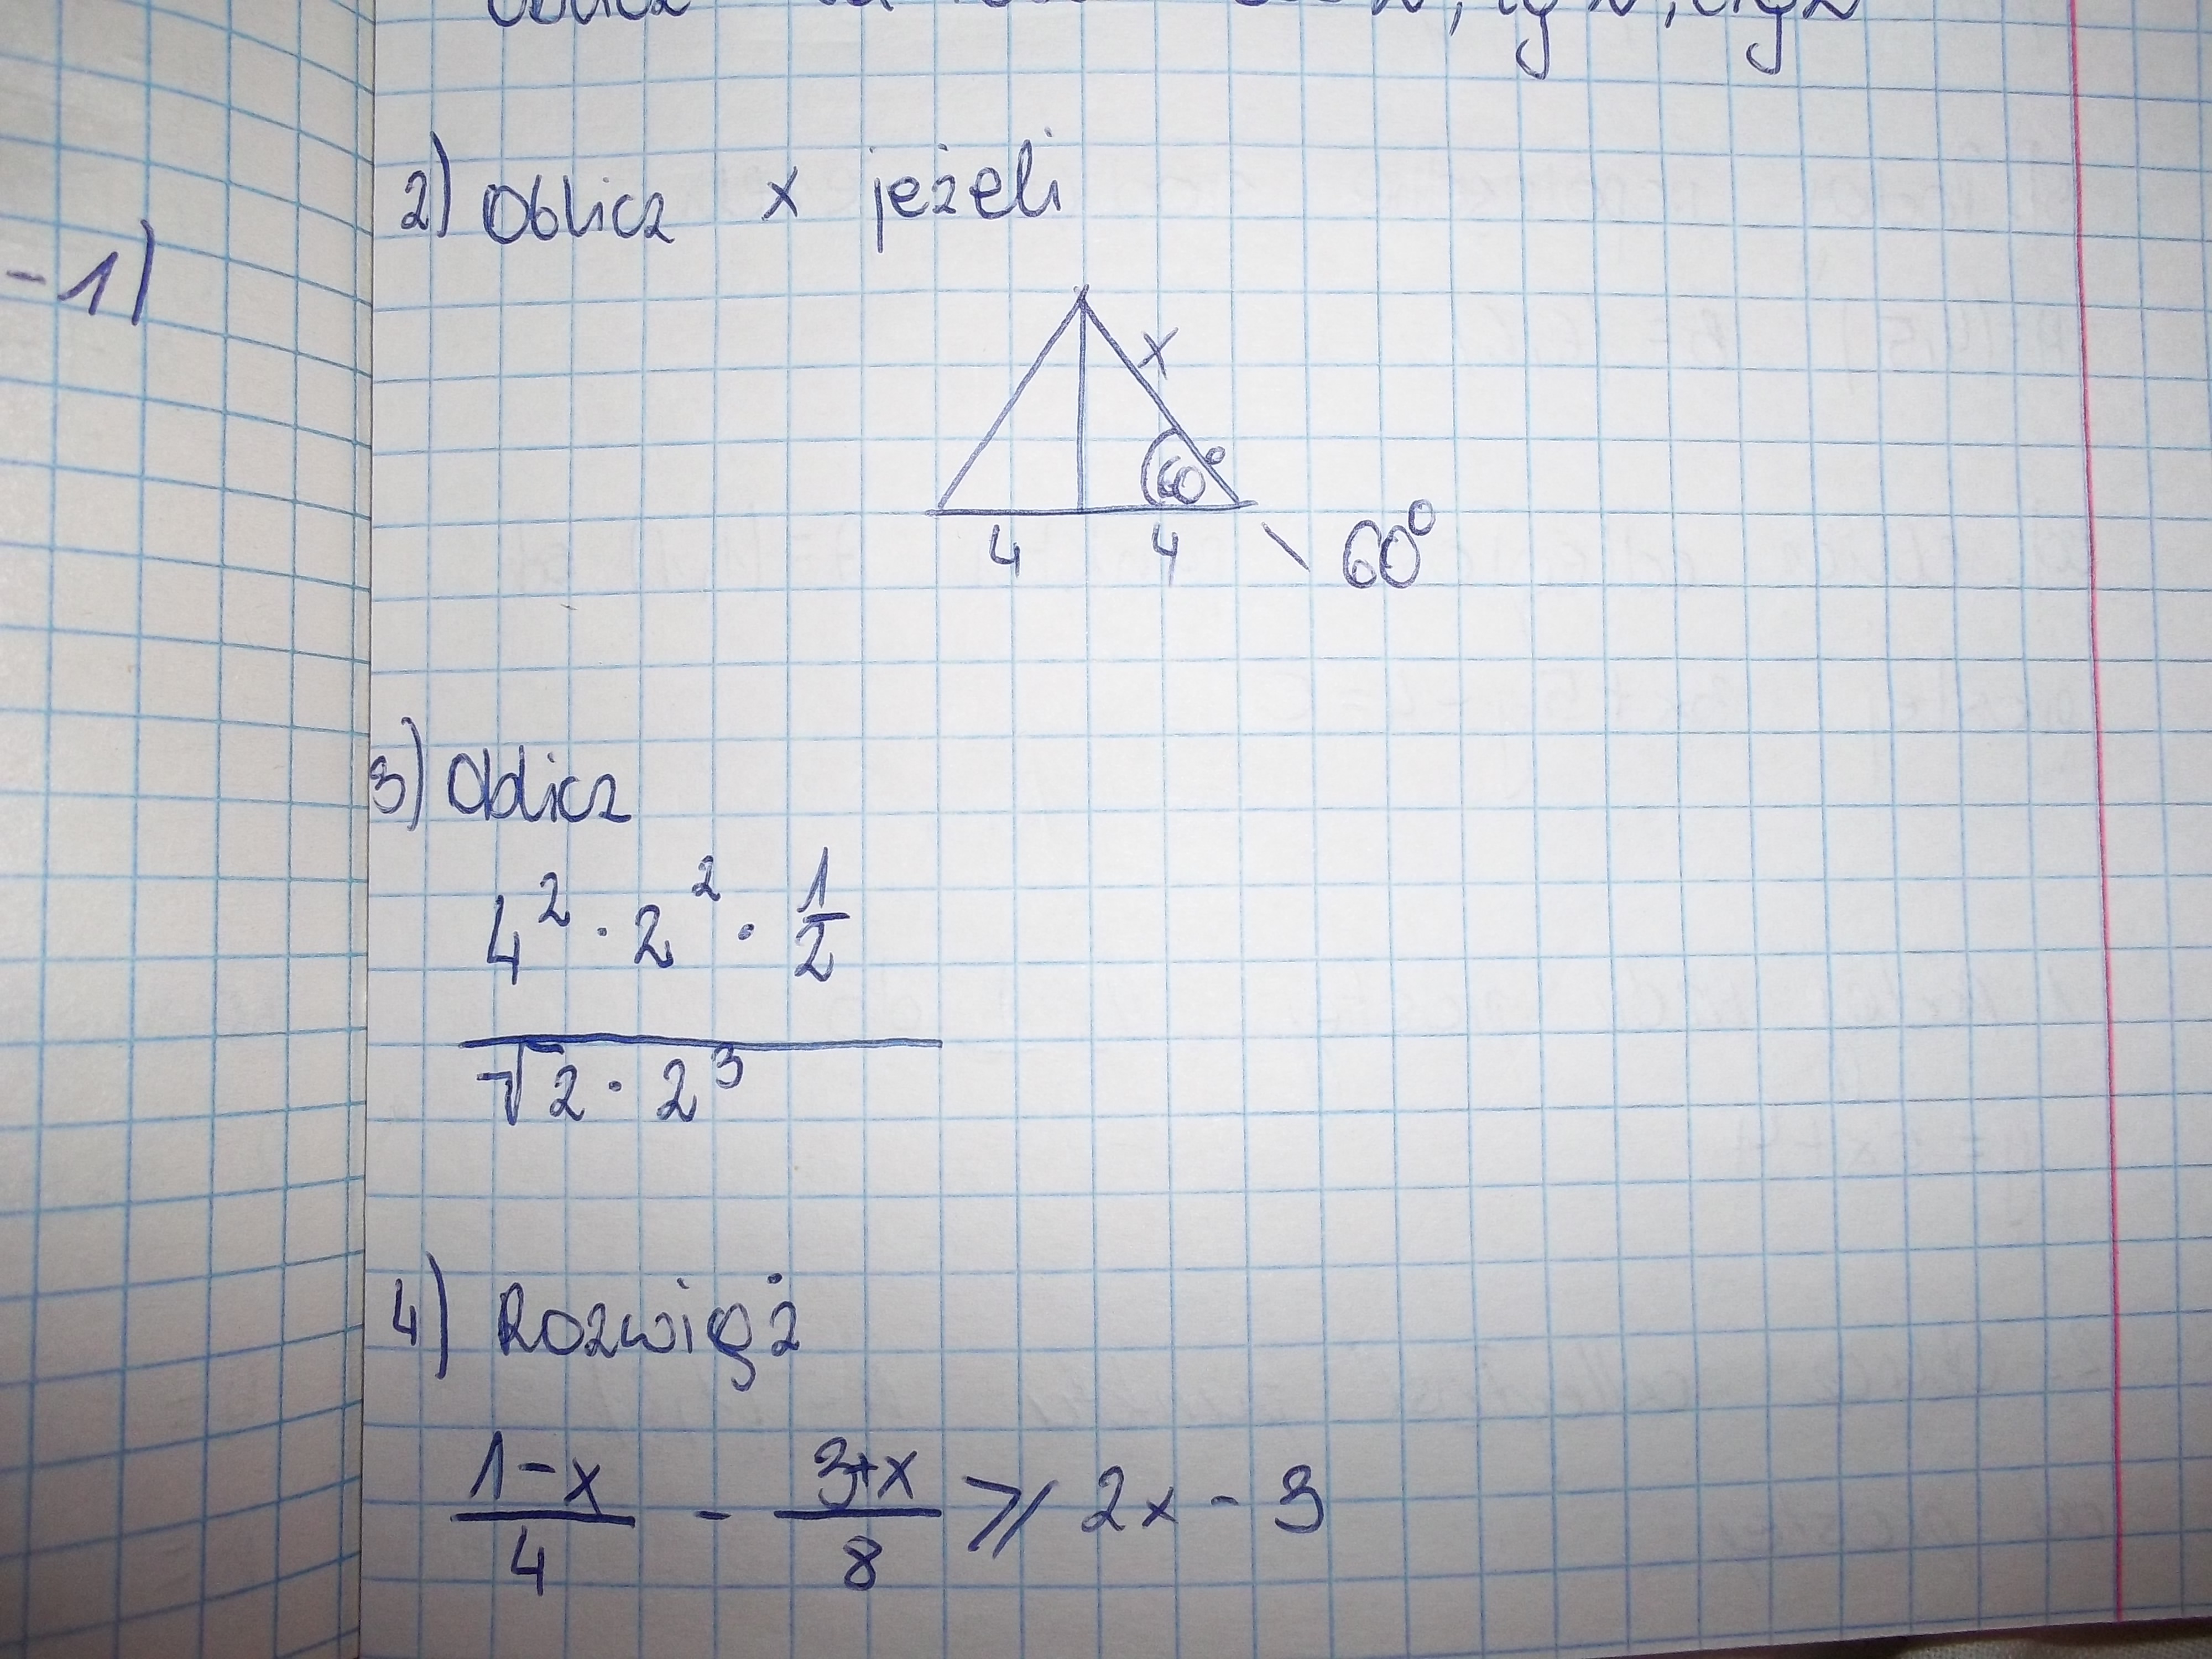 tg
2) Oblicz x jeżeli
-1)
x
60°
4 4 60°
3) Oblicz
4² · 2² · 1/2
√2 · 2³
4) Rozwiąż
1-x/4 - 3+x/8 ⩾ 2x - 3